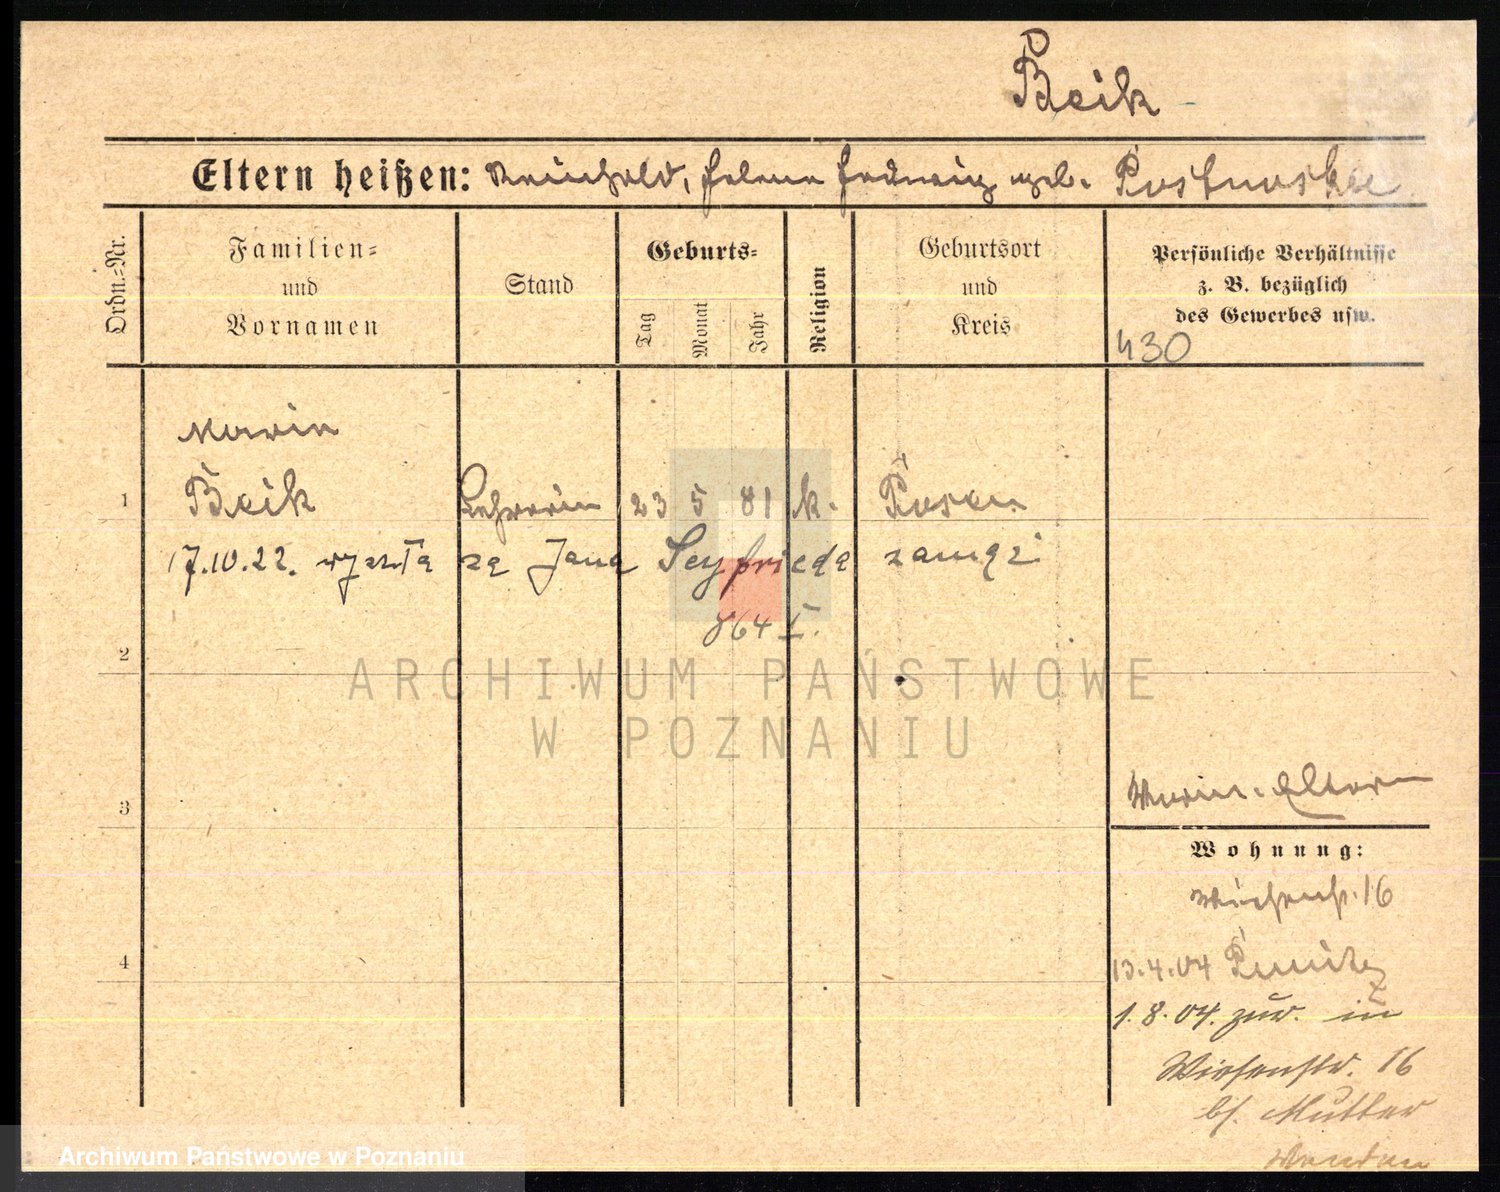 Beik
Eltern heißen: Reinhold, Helena Hedwig geb.
Ordn.=Nr.
Familien= und Vornamen
Stand
Geburts=
Tag
Monat
Jahr
Religion
Geburtsort und Kreis
Persönliche Verhältnisse
z. B. bezüglich
des Gewerbes usw.
430
Maria
1 Beik Lehrerin 23 5 81 k. Posen
17.10.22. wyszła za Jana Seyfrieda zamąż
864 I.
2
ARCHIWUM PAŃSTWOWE
W POZNANIU
3
Eltern
Wohnung:
Wiesenstr. 16
4
13.4.04 Punitz
1.8.04. zur. in
Wiesenstr. 16
bei Mutter
Archiwum Państwowe w Poznaniu